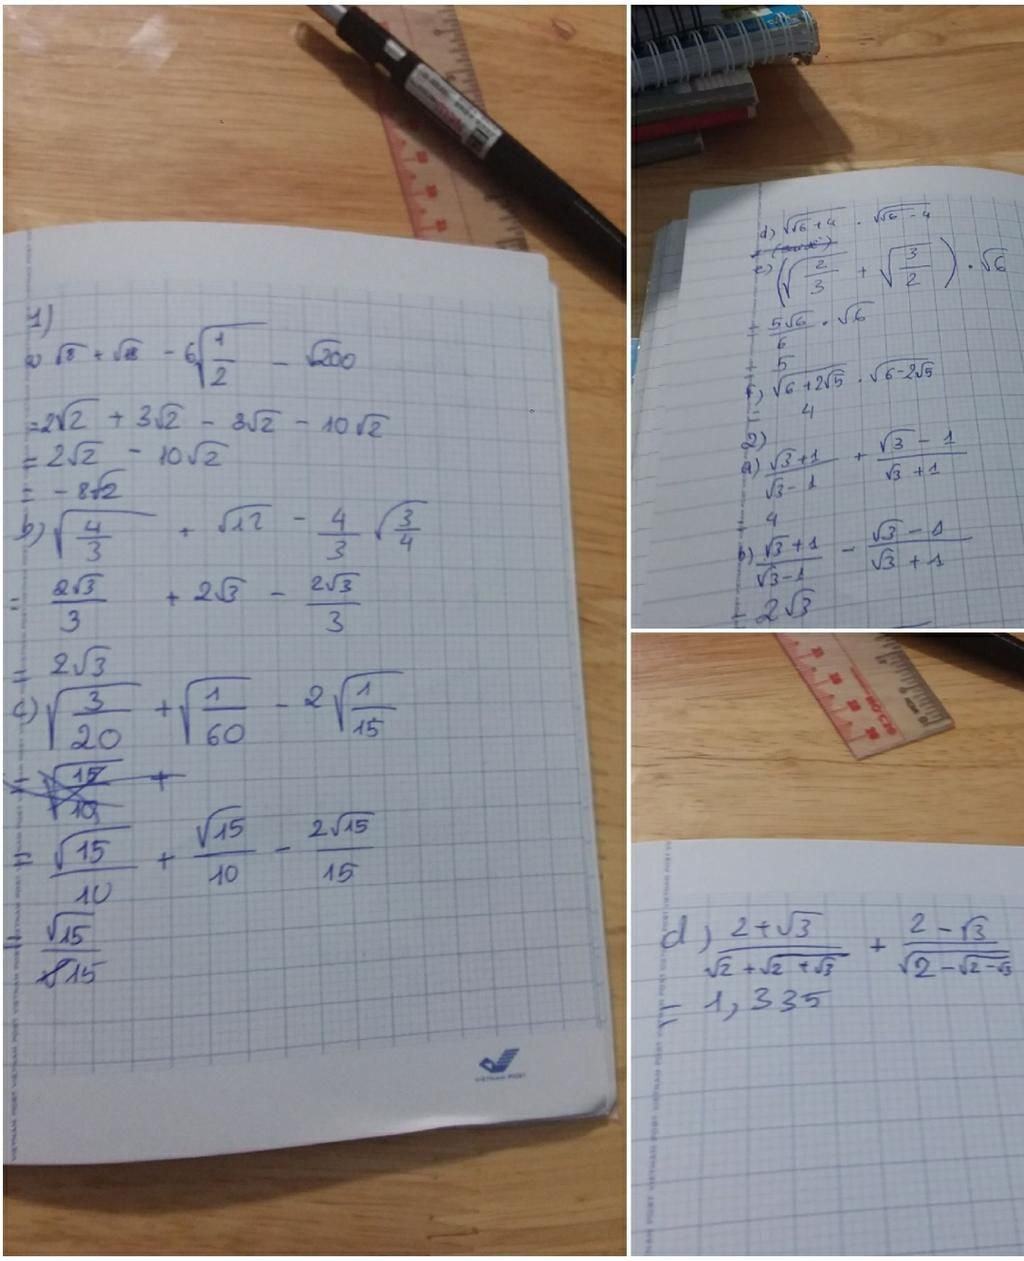 1)
a) √8 + √18 - 6√(1/2) - √200
= 2√2 + 3√2 - 3√2 - 10√2
= 2√2 - 10√2
= -8√2
b) √(4/3) + √12 - 4/3 √(3/4)
= 2√3/3 + 2√3 - 2√3/3
= 2√3
c) √(3/20) + √(1/60) - 2√(1/15)
= √15/10 + √15/10 - 2√15/15
= √15/15
VIETNAM POST
d) √(√6+4) . √(√6-4)
e) (√(2/3) + √(3/2)) . √6
= 5√6/6 . √6
= 5
f) √(6+2√5) . √(6-2√5)
= 4
2)
a) (√3+1)/(√3-1) + (√3-1)/(√3+1)
= 4
b) (√3+1)/(√3-1) - (√3-1)/(√3+1)
= 2√3
d) (2+√3)/(√2+√(2+√3)) + (2-√3)/√(2-√(2-√3))
= 1,335